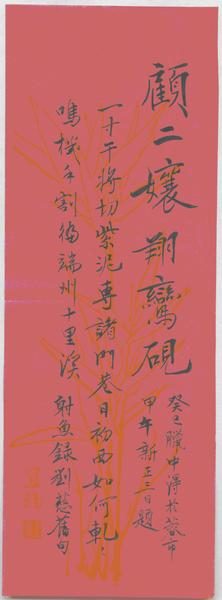 顧二孃翔鸞硯
癸巳臘中得於蓉市
甲午新正三日題
一寸干將切紫泥專諸門巷日初西如何軋〻
鳴機手割徧端州十里溪
射魚錄劉慈舊句